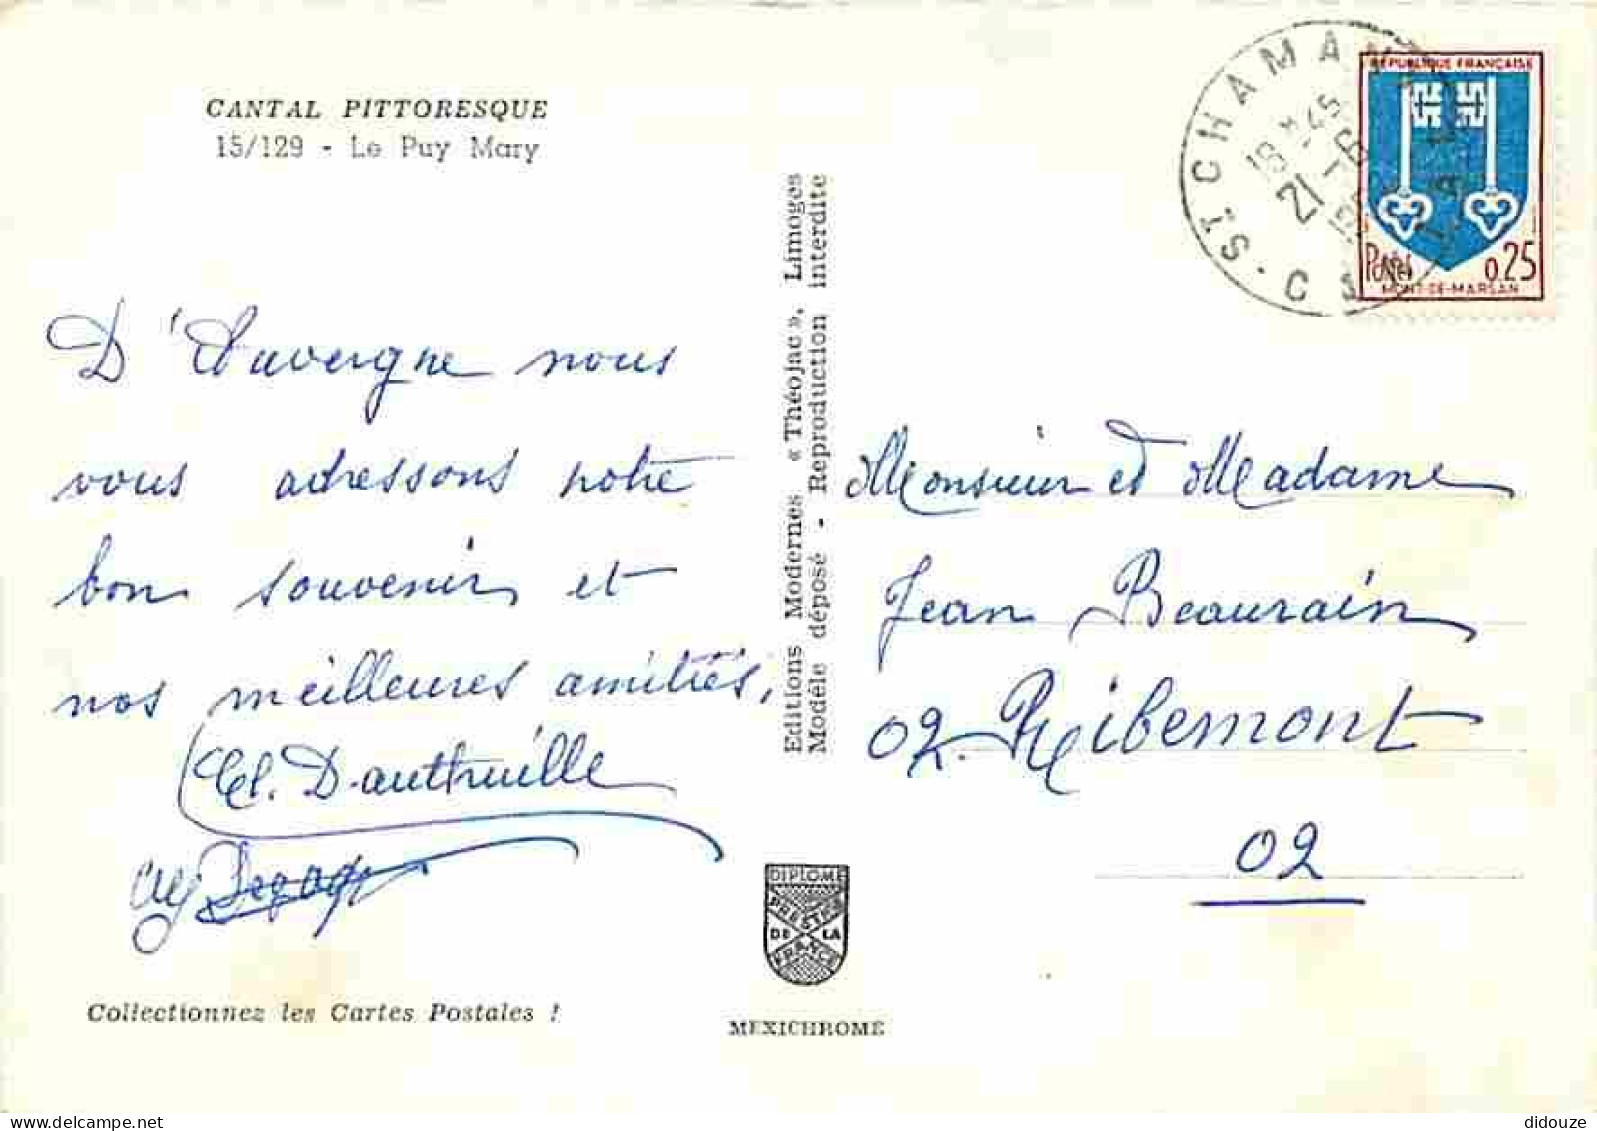 CANTAL PITTORESQUE
15/129 - Le Puy Mary
D'Auvergne nous
vous adressons notre
bon souvenir et
nos meilleures amitiés,
Cl. Dautheuille
Collectionnez les Cartes Postales !
Editions Modernes « Théojac », Limoges
Modèle déposé - Reproduction interdite
DIPLOME
PRESTIGE
DE LA
FRANCE
MEXICHROME
ST-CHAMANT
18 H 45
21 - 6
RÉPUBLIQUE FRANÇAISE
Postes 0,25
MONT-DE-MARSAN
Monsieur et Madame
Jean Beaurain
02. Ribemont
02
delcampe.net
didouze